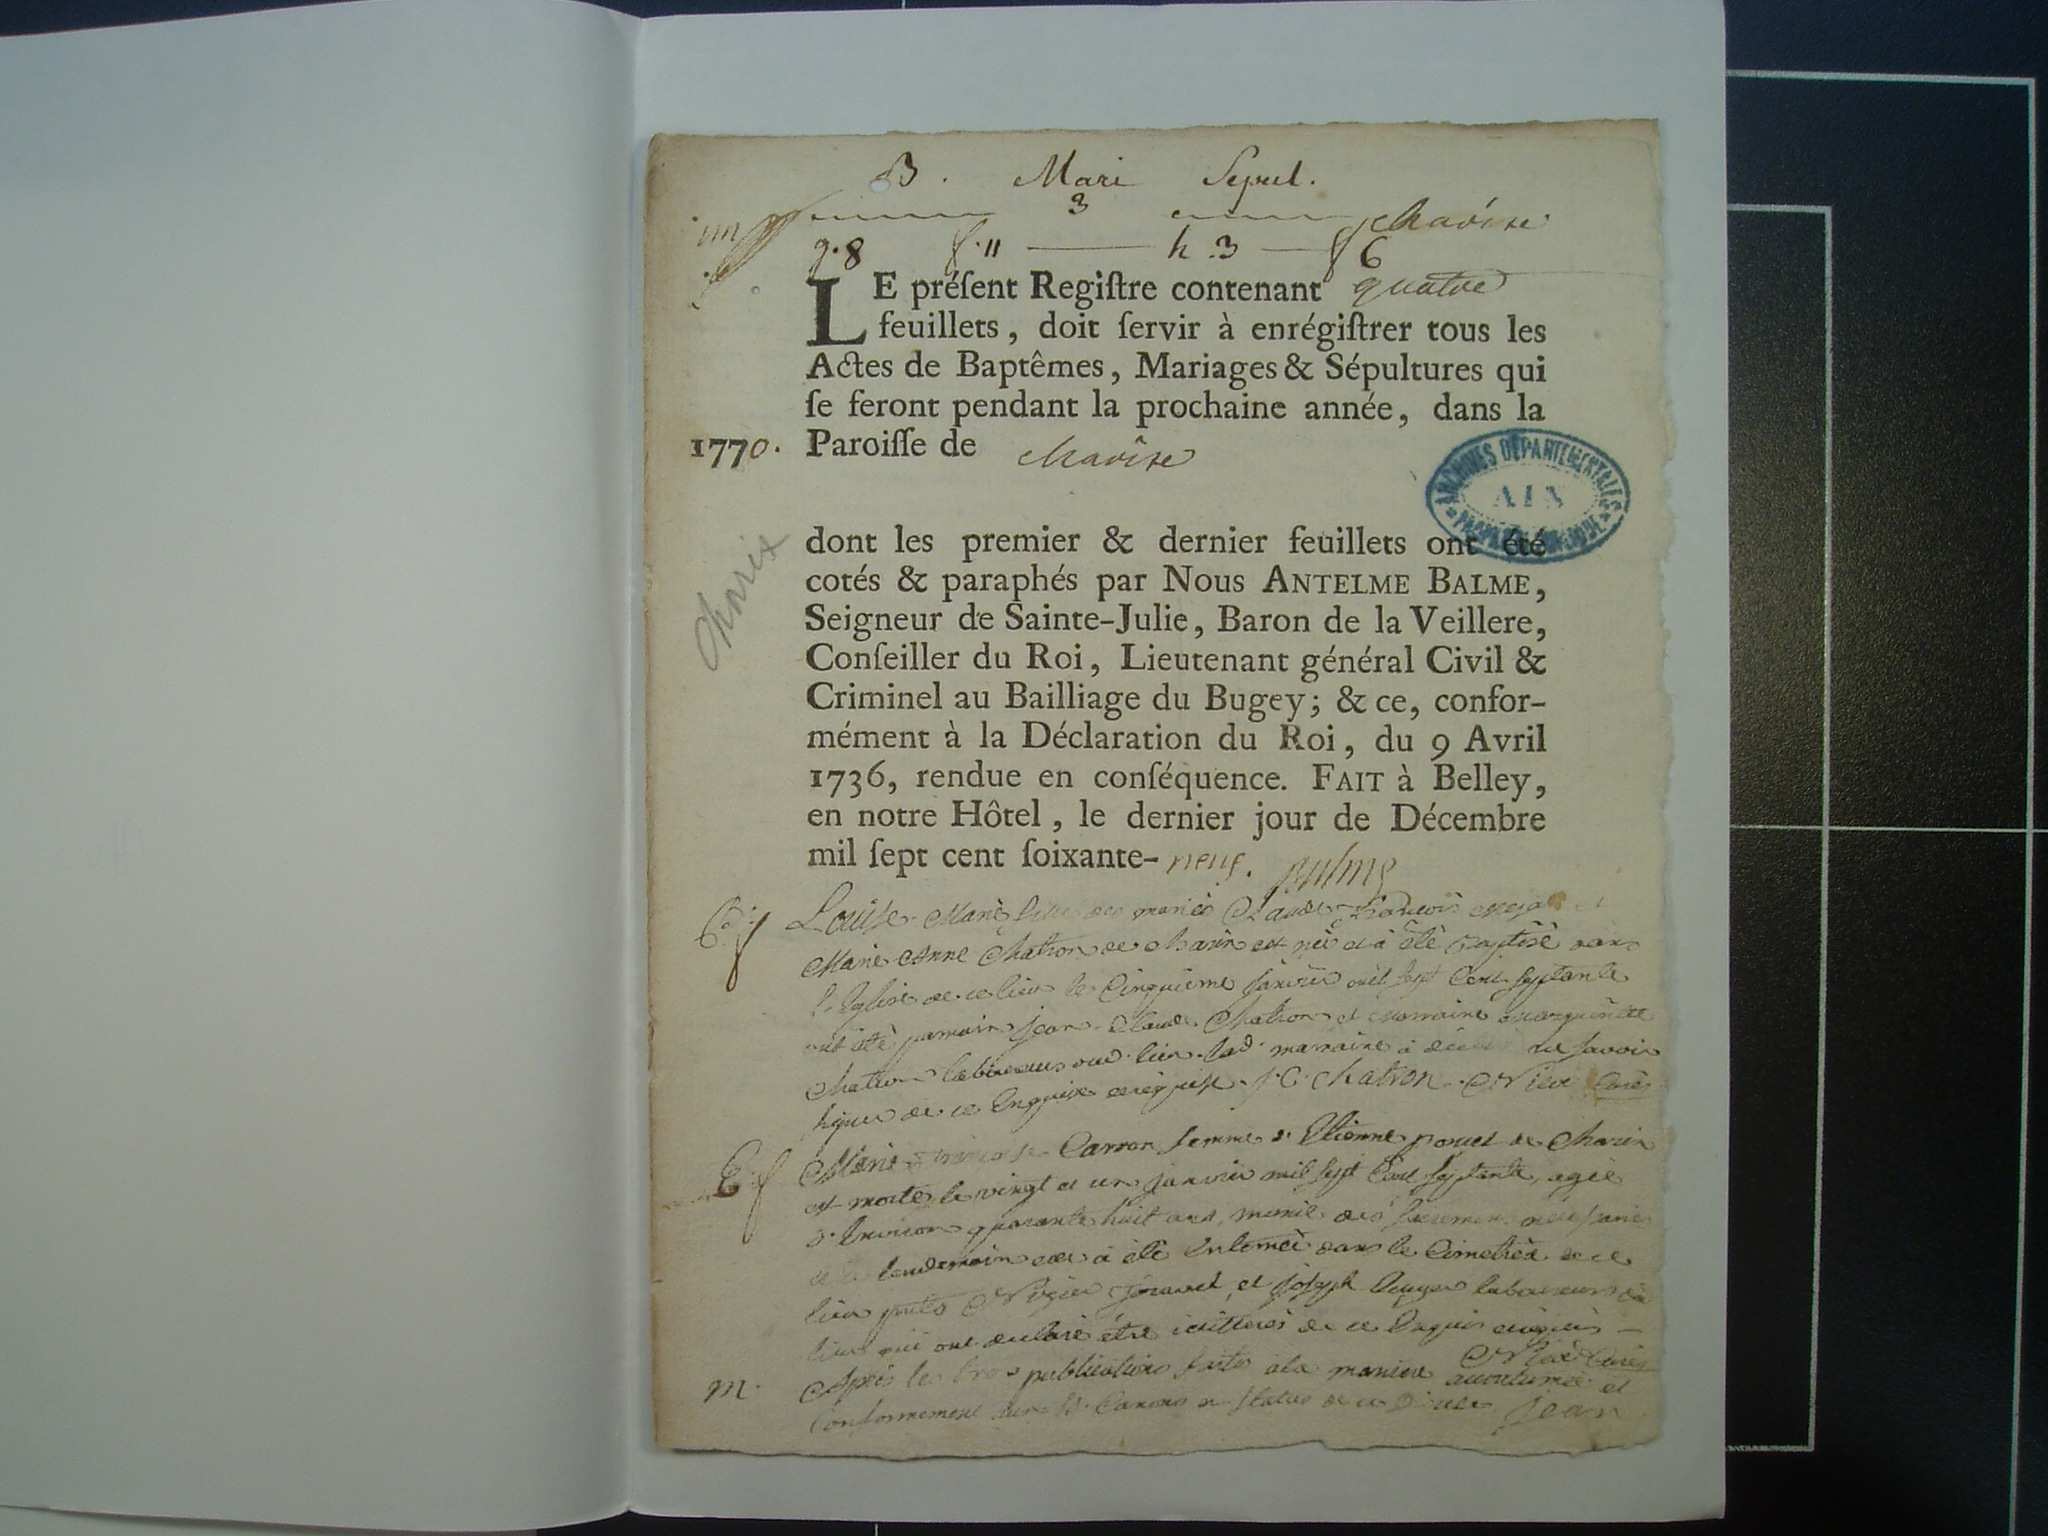 B. Mari Sepul.
3 Charix
g. 8 f. 11 h. 3 f 6
LE préſent Regiſtre contenant quatre
feuillets, doit ſervir à enrégiſtrer tous les
Actes de Baptêmes, Mariages & Sépultures qui
ſe feront pendant la prochaine année, dans la
1770. Paroiſſe de Charix
ARCHIVES DÉPARTEMENTALES
AIN
dont les premier & dernier feuillets ont été
cotés & paraphés par Nous ANTELME BALME,
Charix
Seigneur de Sainte-Julie, Baron de la Veillere,
Conſeiller du Roi, Lieutenant général Civil &
Criminel au Bailliage du Bugey; & ce, confor-
mément à la Déclaration du Roi, du 9 Avril
1736, rendue en conſéquence. FAIT à Belley,
en notre Hôtel, le dernier jour de Décembre
mil ſept cent ſoixante-neuf. Balme
B. f Louise Marie fille des mariés Claude François
Marie Anne Chatron de Charix est née et à été Baptisé dans
l'Eglise de ce lieu le Cinquieme janvier mil sept Cent septante
ont été parrain jean Claude Chatron et marraine
Chatron laboureurs dud. lieu. lad. marraine à de savoir
signer de ce Enquise et réquise. J. C. Chatron. Curé
E. f Marie françoise Carron femme d'Etienne poncet de Charix
est morte le vingt et un janvier mil sept Cent septante, agée
d'Environ quarante huit ans, munie des sacremens
lendemain elle à été Enterrée dans le Cimetière de ce
lieu pnts et joseph laboureurs du
lieu qui ont déclaré être illitterés de ce Enquis
Curé
M. Après les trois publications faites à la maniere accoutumée et
Conformement aux St. Canons et Statuts de ce Diocese Jean